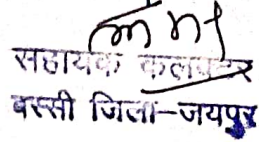 सहायक कलक्टर
बस्सी जिला-जयपुर